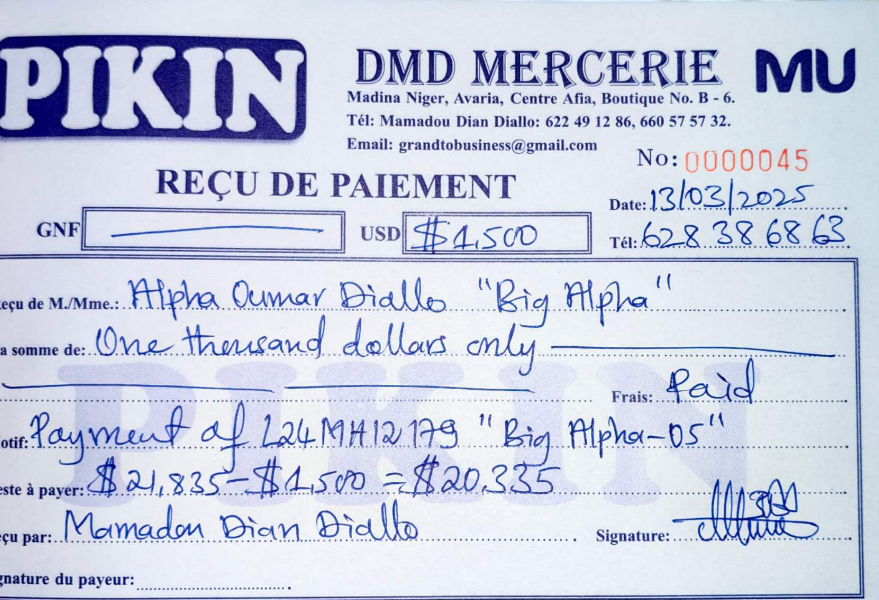 PIKIN
DMD MERCERIE
MU
Madina Niger, Avaria, Centre Afia, Boutique No. B - 6.
Tél: Mamadou Dian Diallo: 622 49 12 86, 660 57 57 32.
Email: grandtobusiness@gmail.com
No: 0000045
REÇU DE PAIEMENT
Date: 13/03/2025
GNF USD $1,500
Tél: 628 38 68 63
eçu de M./Mme.: Alpha Oumar Diallo "Big Alpha"
a somme de: One thousand dollars only
Frais: Paid
PIKIN
otif: Payment of L24MH12179 "Big Alpha-05"
este à payer: $21,835-$1,500 =$20.335
çu par: Mamadou Dian Diallo
Signature:
gnature du payeur: